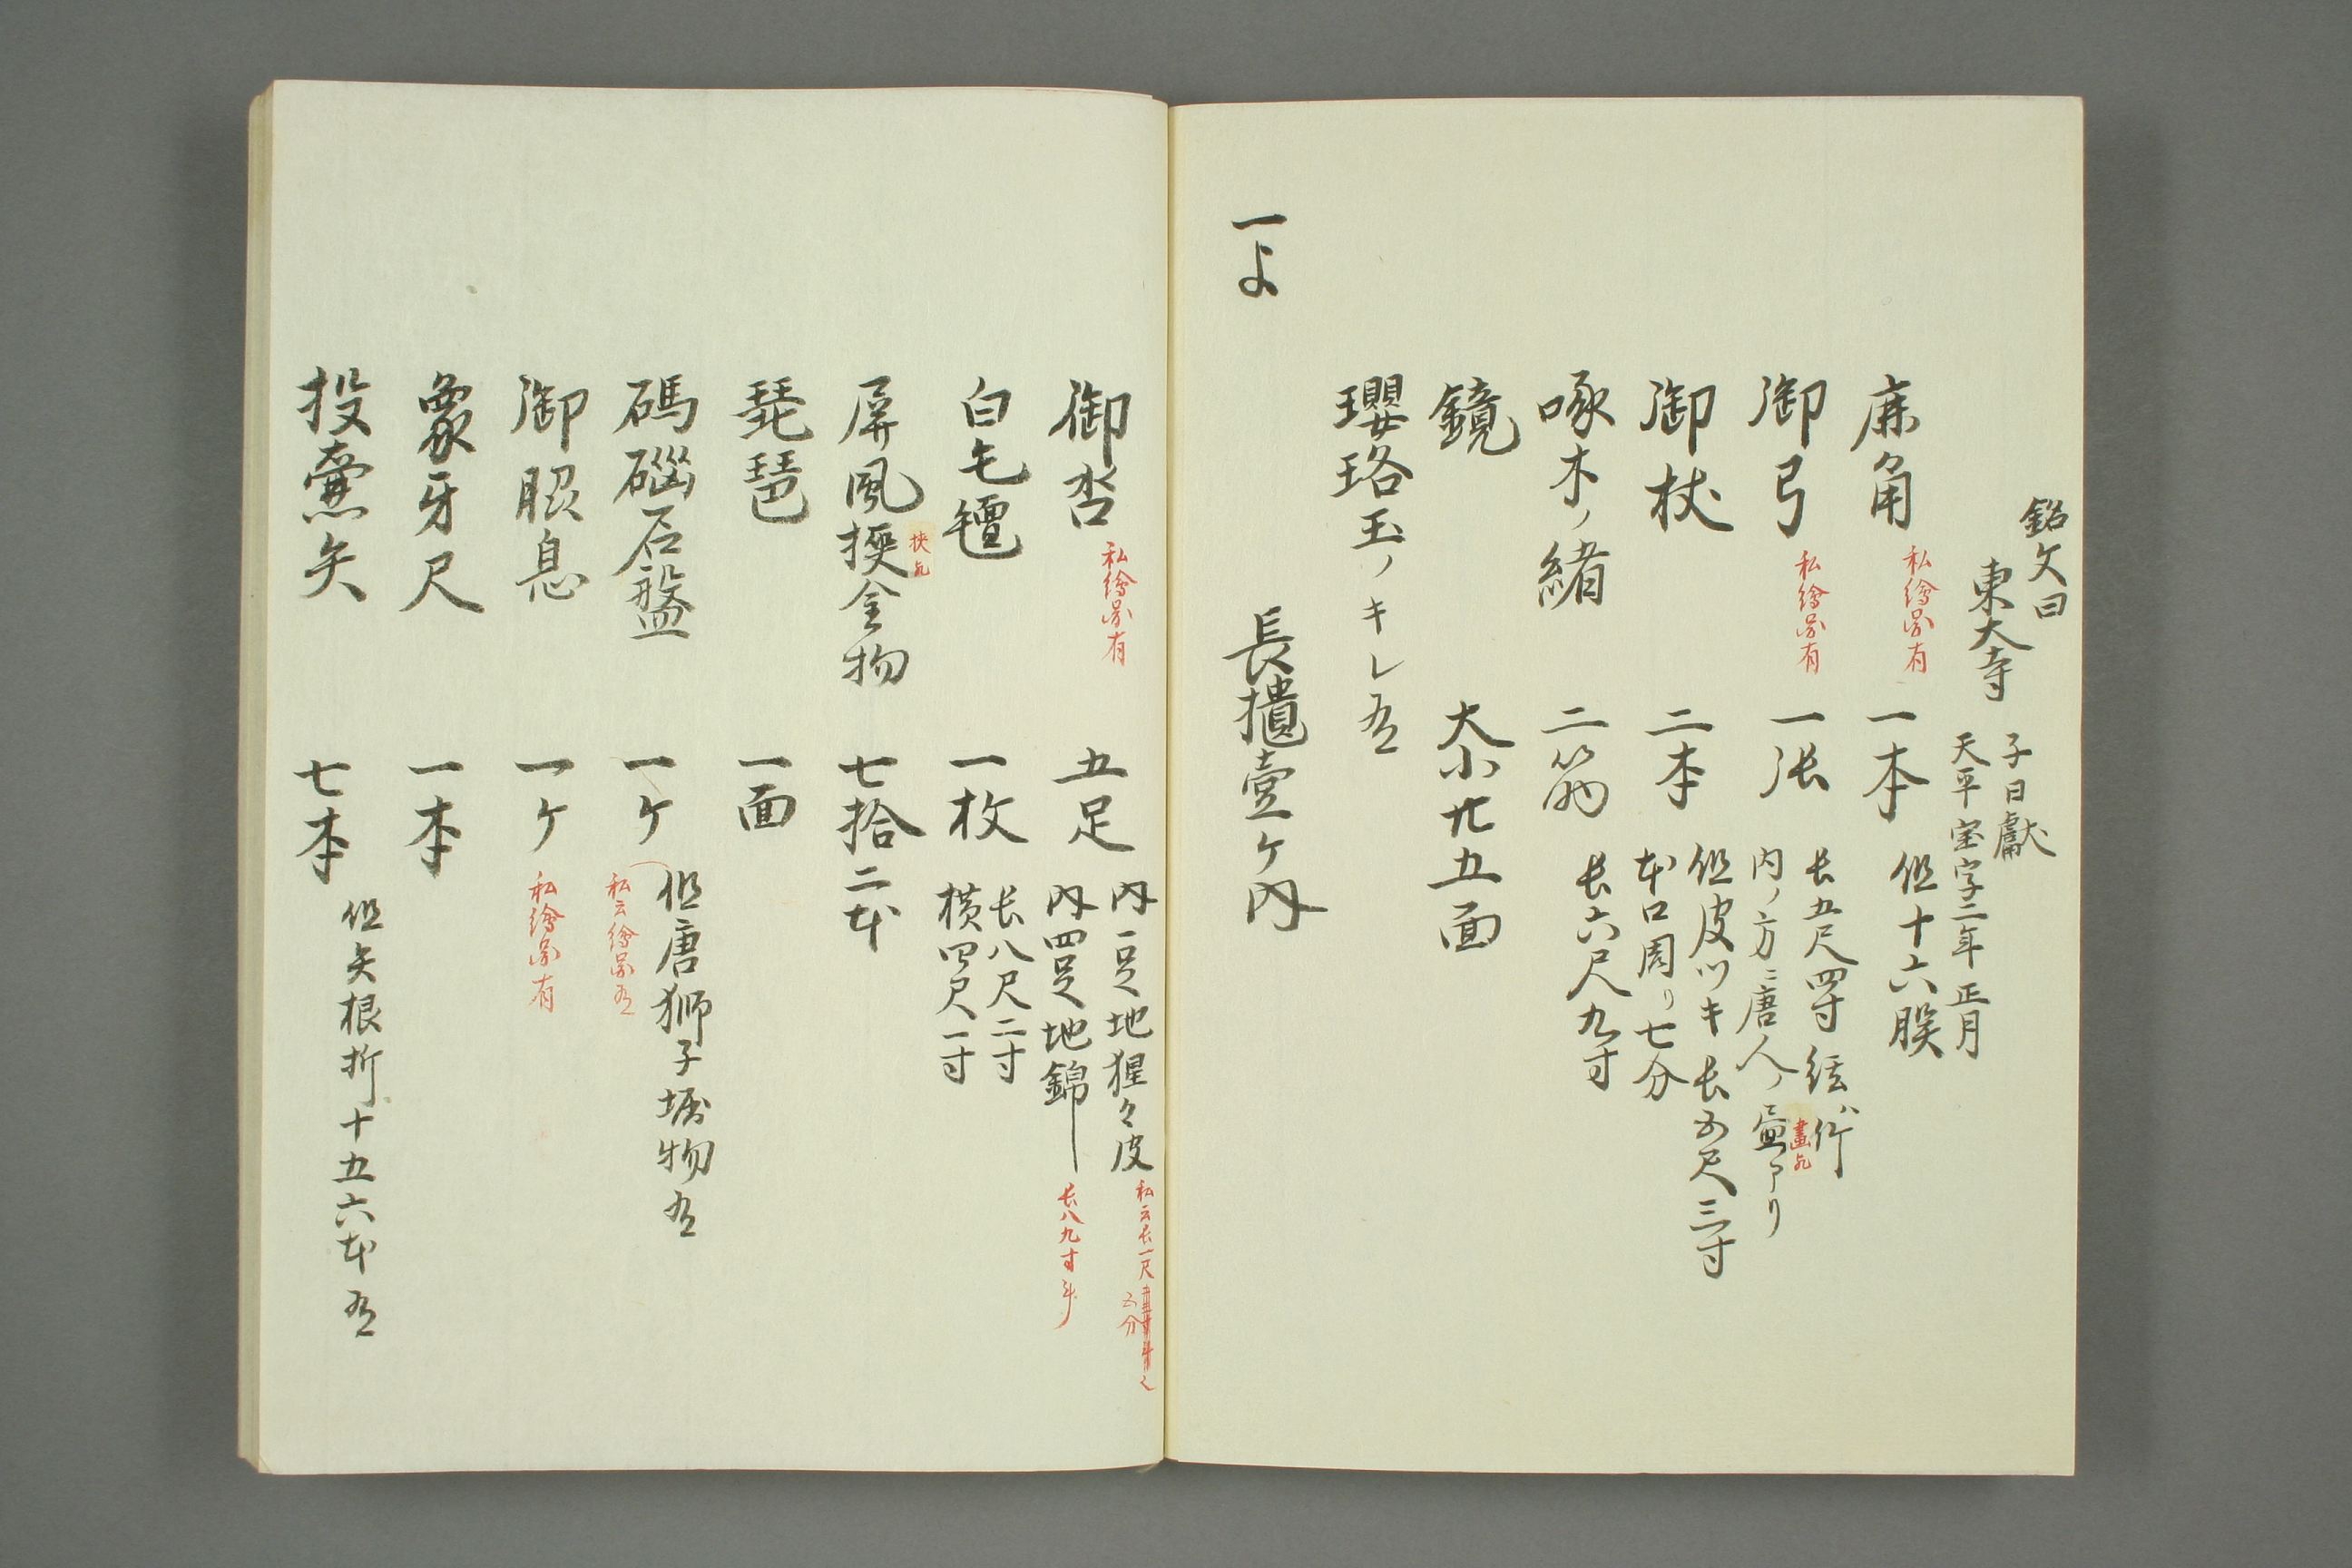 銘文曰
東大寺
子日獻
天平宝字二年正月
鹿角 私繪圖有 一本 但十六股
御弓 私繪圖有 一張 長五尺四寸 絃ハ竹
内ノ方ニ唐人ノ畫アリ
畫カ
御杖 二本 但皮ツキ長五尺三寸
本口周リ七分
啄木ノ緒 二筋 長六尺九寸
鏡 大小廿五面
瓔珞玉ノキレ有
一よ 長櫃壹ケ内
御沓 私繪圖有 五足 内一足地猩々皮 私云長一尺五分
内四足地錦 長八九寸斗
白毛氈 一枚 長八尺二寸
横四尺一寸
屏風挾金物 七拾二本
挟カ
琵琶 一面
碼碯石盤 一ケ 但唐獅子堀物有
私云繪圖有
御脇息 一ケ 私繪圖有
象牙尺 一本
投壷矢 七本 但矢根折十五六本有